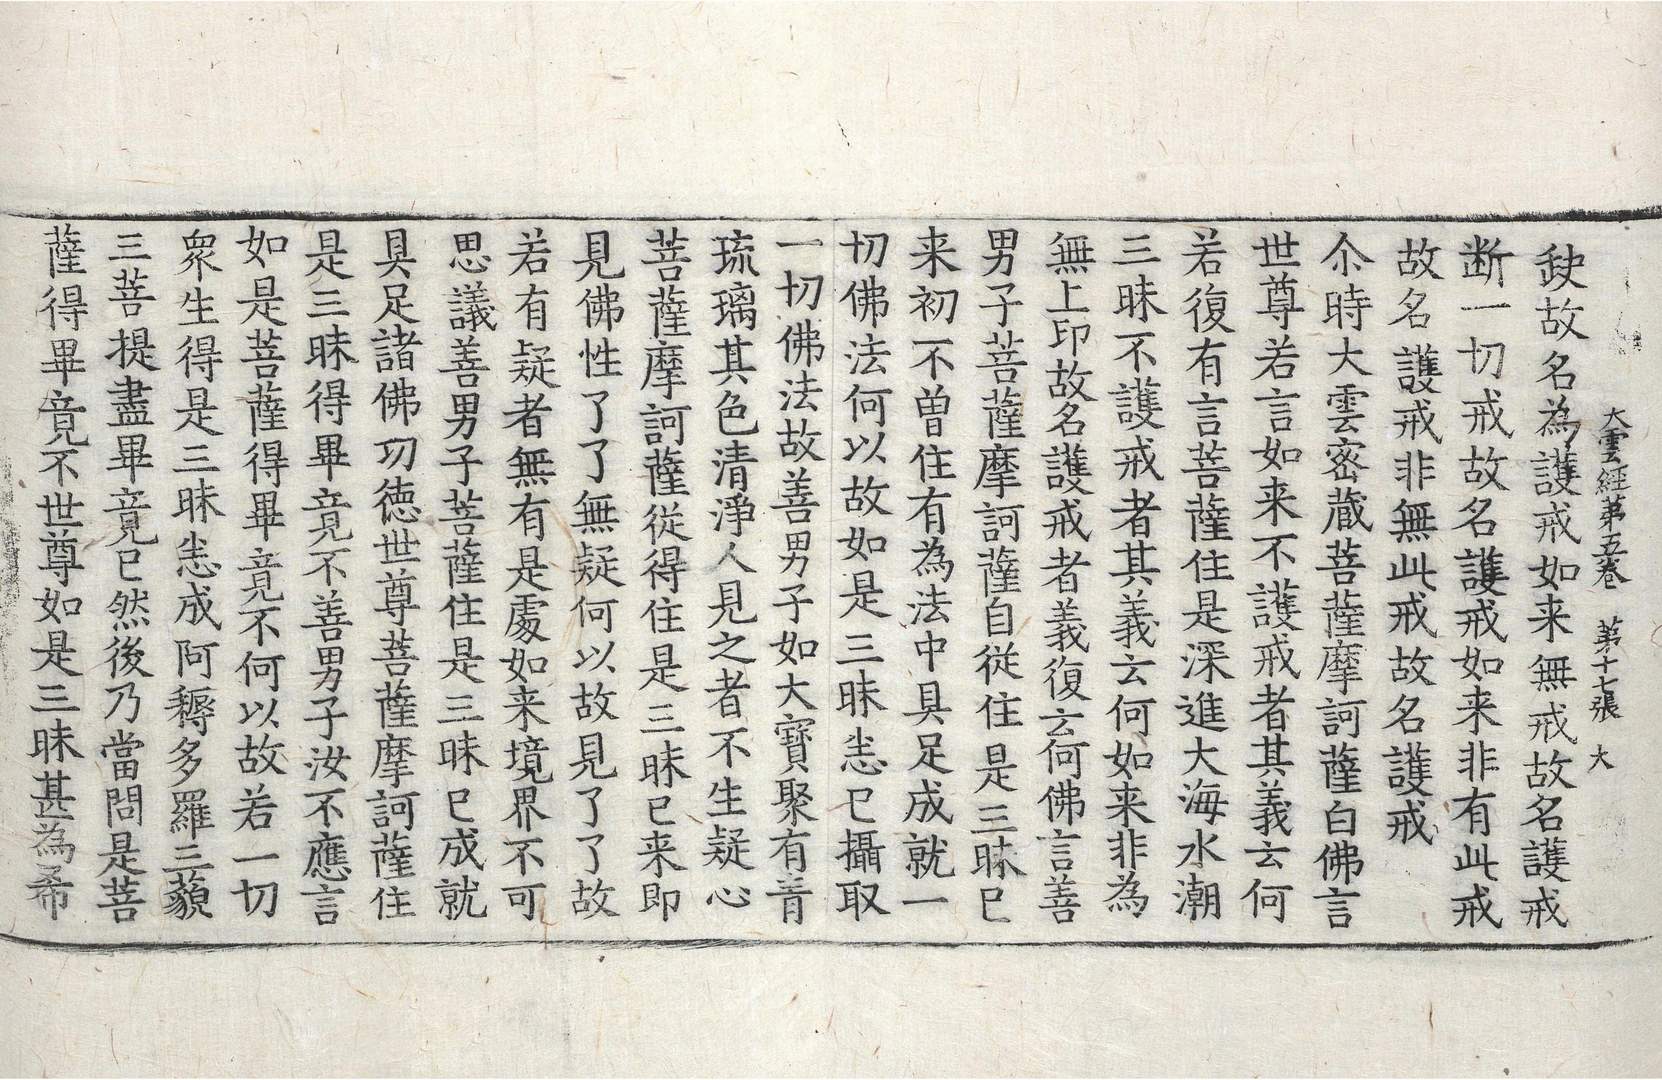 大雲経第五卷 第十七張 大
缺故名為護戒如来無戒故名護戒
断一切戒故名護戒如来非有此戒
故名護戒非無此戒故名護戒
尒時大雲密蔵菩薩摩訶薩白佛言
世尊若言如来不護戒者其義云何
若復有言菩薩住是深進大海水潮
三昧不護戒者其義云何如来非為
無上印故名護戒者義復云何佛言善
男子菩薩摩訶薩自従住是三昧已
来初不曽住有為法中具足成就一
切佛法何以故如是三昧悉已攝取
一切佛法故善男子如大寶聚有青
琉璃其色清淨人見之者不生疑心
菩薩摩訶薩従得住是三昧已来即
見佛性了了無疑何以故見了了故
若有疑者無有是處如来境界不可
思議善男子菩薩住是三昧已成就
具足諸佛功徳世尊菩薩摩訶薩住
是三昧得畢竟不善男子汝不應言
如是菩薩得畢竟不何以故若一切
衆生得是三昧悉成阿耨多羅三藐
三菩提盡畢竟已然後乃當問是菩
薩得畢竟不世尊如是三昧甚為希